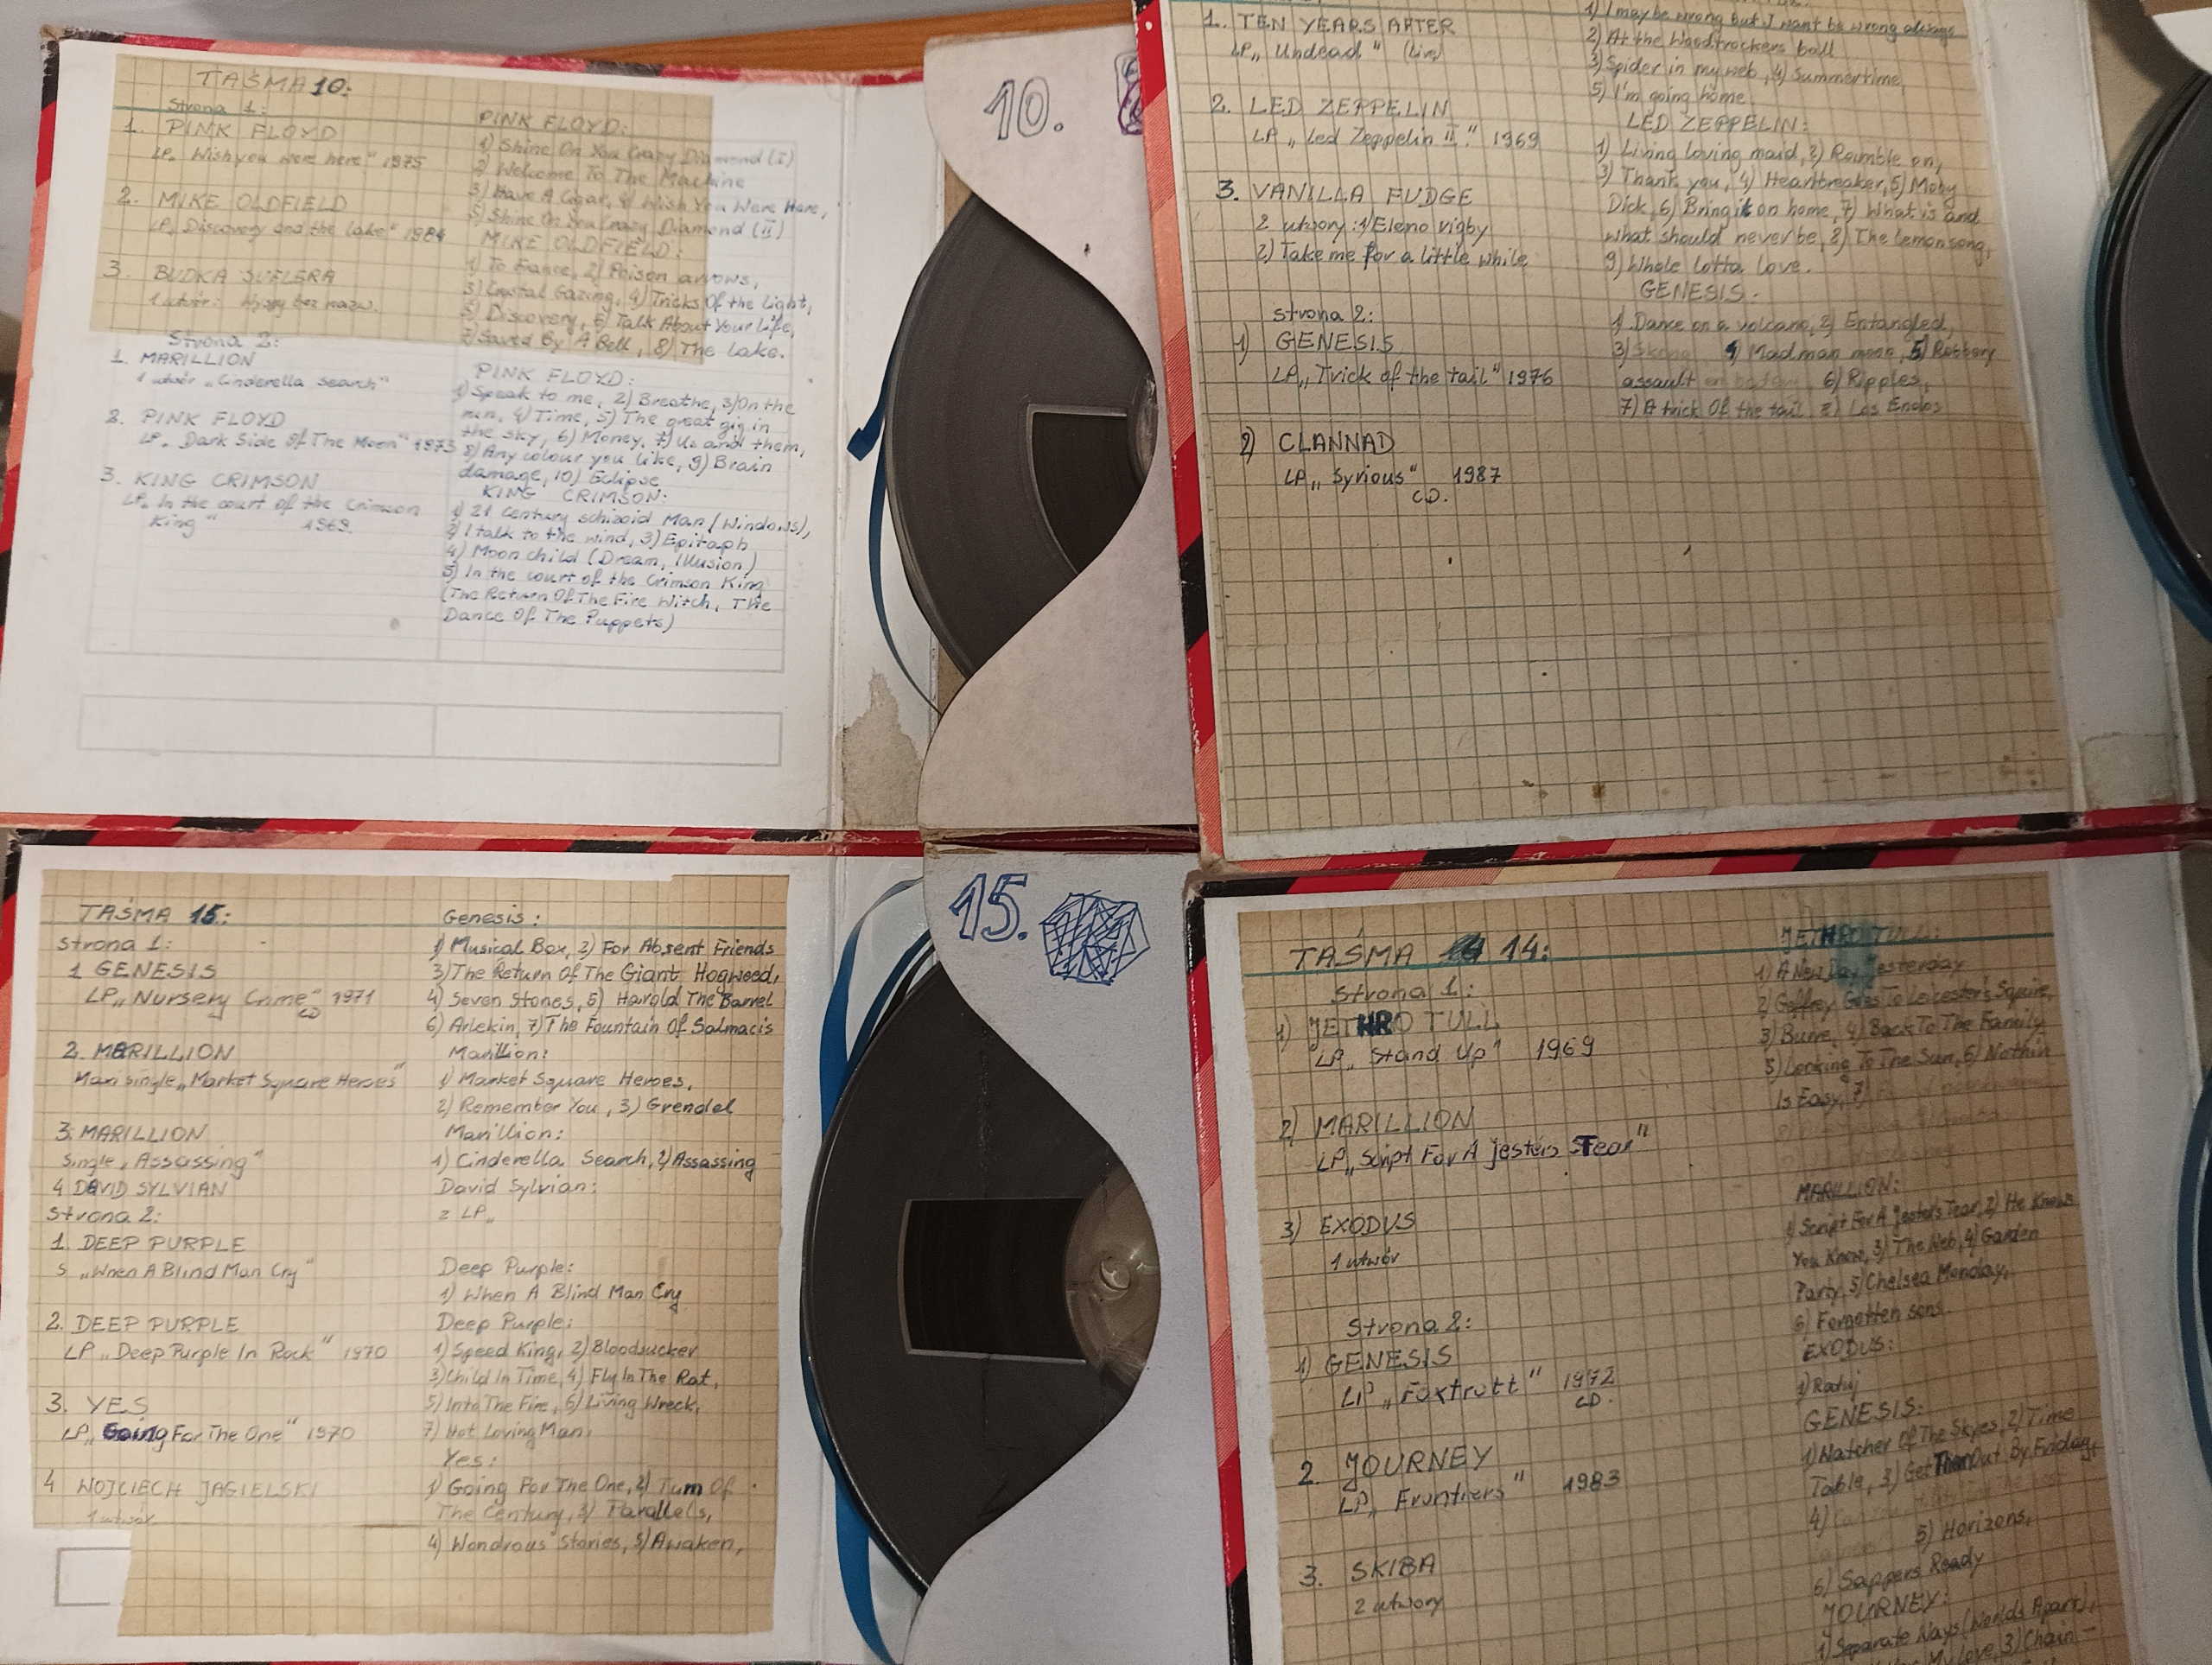 TAŚMA 10:
strona 1:
1. PINK FLOYD
LP„ Wish you were here" 1975
2. MIKE OLDFIELD
LP„ Discovery and the lake" 1984
3. BUDKA SUFLERA
1 utwór: bez nazw.
Strona 2:
1. MARILLION
1 utwór „Cinderella Search"
2. PINK FLOYD
LP„ Dark Side Of The Moon" 1973
3. KING CRIMSON
LP„ In the court of the Crimson
King" 1969.
PINK FLOYD:
1) Shine On You Crazy Diamond (I)
2) Welcome To The Machine
3) Have A Cigar, 4) Wish You Were Here,
5) Shine On You Crazy Diamond (II)
MIKE OLDFIELD:
1) To France, 2) Poison arrows,
3) Crystal Gazing, 4) Tricks Of the Light,
5) Discovery, 6) Talk About Your Life,
7) Saved By A Bell, 8) The Lake.
PINK FLOYD:
1) Speak to me, 2) Breathe, 3) On the
run, 4) Time, 5) The great gig in
the sky, 6) Money, 7) Us and them,
8) Any colour you like, 9) Brain
damage, 10) Eclipse
KING CRIMSON:
1) 21 Century schizoid Man (Windows),
2) I talk to the wind, 3) Epitaph
4) Moon child (Dream, Illusion)
5) In the court of the Crimson King
(The Return Of The Fire Witch, The
Dance Of The Puppets)
10.
1. TEN YEARS AFTER
LP„ Undead" (Live)
2. LED ZEPPELIN
LP „ Led Zeppelin II" 1969
3. VANILLA FUDGE
2 utwory: 1) Eleno rigby
2) Take me for a little while
strona 2:
1) GENESIS
LP„ Trick of the tail" 1976
2) CLANNAD
LP„ Syrious" 1987
CD.
1) I may be wrong but I want be wrong always
2) At the Woodtrockers ball
3) Spider in my web, 4) Summertime,
5) I'm going home.
LED ZEPPELIN:
1) Living loving maid, 2) Ramble on,
3) Thank you, 4) Heartbreaker, 5) Moby
Dick, 6) Bring it on home, 7) What is and
what should never be, 8) The lemon song,
9) Whole lotta love.
GENESIS:
1) Dance on a volcano, 2) Entangled,
3) 4) Mad man moon, 5) Robbery
assault 6) Ripples,
7) A trick Of the tail 8) Los Endos
TAŚMA 15:
strona 1:
1 GENESIS
LP„ Nursery Crime" 1971
CD
2. MARILLION
Maxisingle„ Market Square Heroes"
3. MARILLION
Single „ Assassing"
4 DAVID SYLVIAN
strona 2:
1. DEEP PURPLE
S „When A Blind Man Cry"
2. DEEP PURPLE
LP „Deep Purple In Rock" 1970
3. YES
LP„ Going For The One" 1970
4 WOJCIECH JAGIELSKI
1 utwór
Genesis:
1) Musical Box, 2) For Absent Friends
3) The Return Of The Giant Hogweed,
4) Seven Stones, 5) Harold The Barrel
6) Arlekin, 7) The Fountain Of Salmacis
Marillion:
1) Market Square Heroes,
2) Remember You, 3) Grendel
Marillion:
1) Cinderella Search, 2) Assassing
David Sylvian:
z LP„
Deep Purple:
1) When A Blind Man Cry
Deep Purple:
1) Speed King, 2) Bloodsucker
3) Child In Time, 4) Fly In The Rat,
5) Into The Fire, 6) Living Wreck,
7) Hot Loving Man.
Yes:
1) Going For The One, 2) Turn Of
The Century, 3) Parallels,
4) Wondrous Stories, 5) Awaken,
15.
TAŚMA 14:
Strona 1:
1) JETHRO TULL
LP„ Stand Up" 1969
2) MARILLION
LP„ Script For A Jesters Tear"
3) EXODUS
1 utwór
Strona 2:
1) GENESIS
LP „ Foxtrott" 1972
CD.
2. JOURNEY
LP„ Fruntiers" 1983
3. SKIBA
2 utwory
JETHRO TULL:
1) A New Day Yesterday
2) Geffrey Goes To Leicester's Squire,
3) Burre, 4) Back To The Family
5) Looking To The Sun, 6) Nothin
Is Easy, 7)
MARILLION:
1) Script For A Jester's Tear, 2) He Knows
You Know, 3) The Web, 4) Garden
Party, 5) Chelsea Monday,
6) Forgotten sons.
EXODUS:
1) Raduj
GENESIS:
1) Watcher Of The Skyes, 2) Time
Table, 3) Get Them Out By Friday,
4)
5) Horizons,
6) Sappers Ready
JOURNEY:
1) Separate Ways (Worlds Apart),
My Love, 3) Chain-